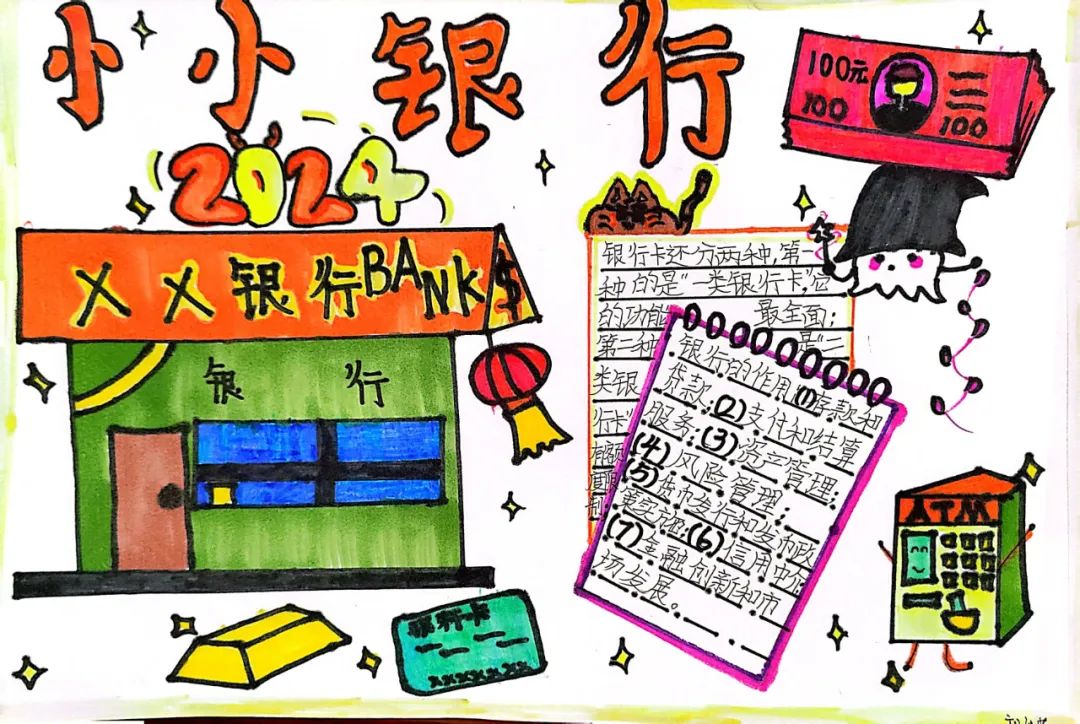 小小银行
2024
XX银行BANK$
银行
100元
100
100
银行卡还分两种,第一
种的是“一类银行卡”,它
的功能 最全面;
第二种 是“二
类银
行卡”
银行的作用(1)存款和
贷款;(2)支付和结算
服务;(3)资产管理;
(4)风险管理;
(5)货币发行和货币政
策实施;(6)信用中介
(7)金融创新和市
场发展。
ATM
银行卡